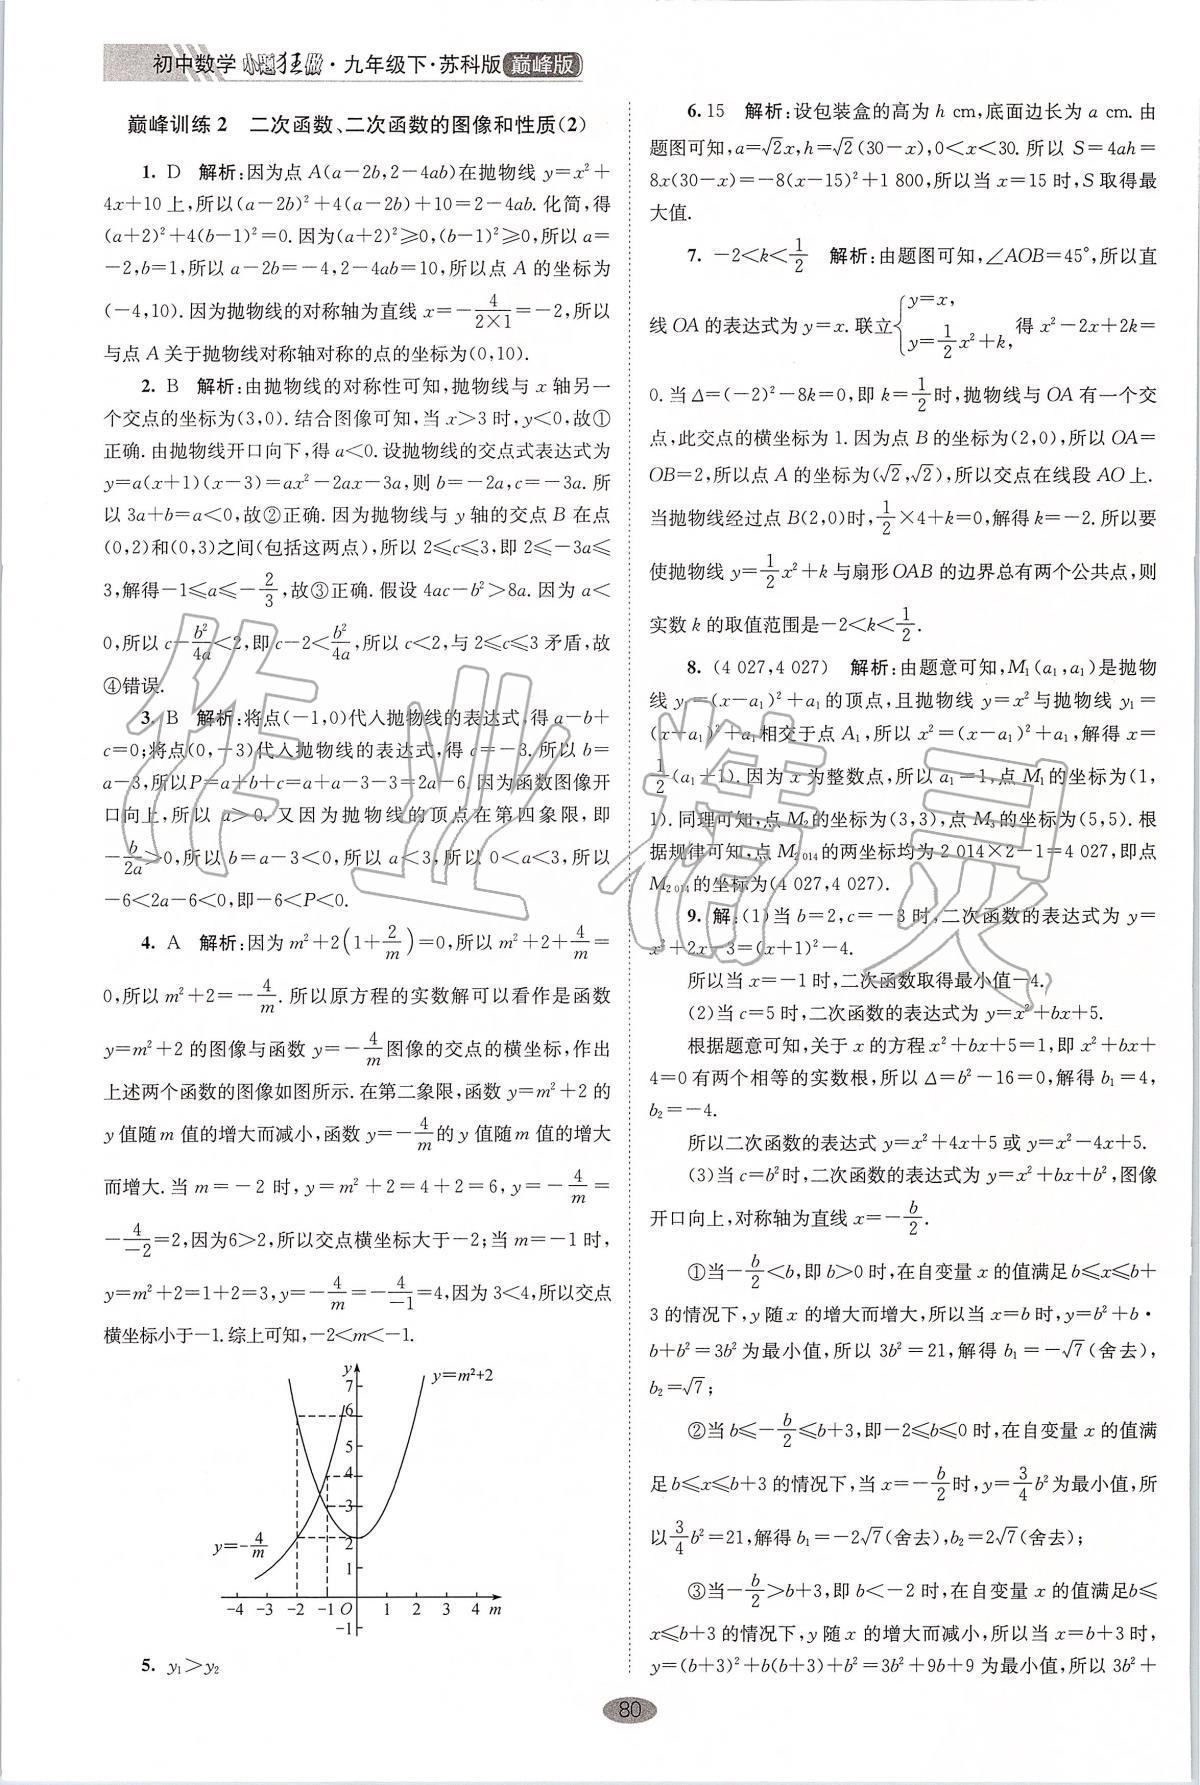 初中数学小题狂做·九年级下·苏科版 巅峰版
巅峰训练2 二次函数、二次函数的图像和性质(2)
1. D 解析:因为点 A(a-2b,2-4ab)在抛物线 y=x²+
4x+10 上,所以(a-2b)²+4(a-2b)+10=2-4ab. 化简,得
(a+2)²+4(b-1)²=0. 因为(a+2)²≥0,(b-1)²≥0,所以 a=
-2,b=1,所以 a-2b=-4,2-4ab=10,所以点 A 的坐标为
(-4,10). 因为抛物线的对称轴为直线 x=-4/(2×1)=-2,所以
与点 A 关于抛物线对称轴对称的点的坐标为(0,10).
2. B 解析:由抛物线的对称性可知,抛物线与 x 轴另一
个交点的坐标为(3,0). 结合图像可知,当 x>3 时,y<0,故①
正确. 由抛物线开口向下,得 a<0. 设抛物线的交点式表达式为
y=a(x+1)(x-3)=ax²-2ax-3a,则 b=-2a,c=-3a. 所
以 3a+b=a<0,故②正确. 因为抛物线与 y 轴的交点 B 在点
(0,2)和(0,3)之间(包括这两点),所以 2≤c≤3,即 2≤-3a≤
3,解得-1≤a≤-2/3,故③正确. 假设 4ac-b²>8a. 因为 a<
0,所以 c-b²/4a<2,即 c-2<b²/4a,所以 c<2,与 2≤c≤3 矛盾,故
④错误.
3. B 解析:将点(-1,0)代入抛物线的表达式,得 a-b+
c=0;将点(0,-3)代入抛物线的表达式,得 c=-3. 所以 b=
a-3,所以P=a+b+c=a+a-3-3=2a-6. 因为函数图像开
口向上,所以 a>0. 又因为抛物线的顶点在第四象限,即
-b/2a>0,所以 b=a-3<0,所以 a<3,所以 0<a<3,所以
-6<2a-6<0,即-6<P<0.
4. A 解析:因为 m²+2(1+2/m)=0,所以 m²+2+4/m=
0,所以 m²+2=-4/m. 所以原方程的实数解可以看作是函数
y=m²+2 的图像与函数 y=-4/m图像的交点的横坐标,作出
上述两个函数的图像如图所示. 在第二象限,函数 y=m²+2 的
y 值随 m 值的增大而减小,函数 y=-4/m的 y 值随 m 值的增大
而增大. 当 m=-2 时,y=m²+2=4+2=6,y=-4/m=
-4/-2=2,因为6>2,所以交点横坐标大于-2;当 m=-1 时,
y=m²+2=1+2=3,y=-4/m=-4/-1=4,因为 3<4,所以交点
横坐标小于-1. 综上可知,-2<m<-1.
y
y=m²+2
7
6
5
4
3
2
1
y=-4/m
-4 -3 -2 -1 O 1 2 3 4 m
-1
5. y₁>y₂
6. 15 解析:设包装盒的高为 h cm,底面边长为 a cm. 由
题图可知,a=√2x,h=√2(30-x),0<x<30. 所以 S=4ah=
8x(30-x)=-8(x-15)²+1 800,所以当 x=15 时,S 取得最
大值.
7. -2<k<1/2 解析:由题图可知,∠AOB=45°,所以直
线 OA 的表达式为 y=x. 联立{y=x, y=1/2x²+k, 得 x²-2x+2k=
0. 当 Δ=(-2)²-8k=0,即 k=1/2时,抛物线与 OA 有一个交
点,此交点的横坐标为 1. 因为点 B 的坐标为(2,0),所以 OA=
OB=2,所以点 A 的坐标为(√2,√2),所以交点在线段 AO 上.
当抛物线经过点 B(2,0)时,1/2×4+k=0,解得 k=-2. 所以要
使抛物线 y=1/2x²+k 与扇形 OAB 的边界总有两个公共点,则
实数 k 的取值范围是-2<k<1/2.
8. (4 027,4 027) 解析:由题意可知,M₁(a₁,a₁)是抛物
线 y₁=(x-a₁)²+a₁的顶点,且抛物线 y=x²与抛物线 y₁=
(x-a₁)²+a₁相交于点 A₁,所以 x²=(x-a₁)²+a₁,解得 x=
1/2(a₁+1). 因为 x 为整数点,所以 a₁=1,点 M₁的坐标为(1,
1). 同理可知,点 M₂的坐标为(3,3),点 M₃的坐标为(5,5). 根
据规律可知,点 M₂ ₀₁₄的两坐标均为 2 014×2-1=4 027,即点
M₂ ₀₁₄的坐标为(4 027,4 027).
9. 解:(1)当 b=2,c=-3 时,二次函数的表达式为 y=
x²+2x-3=(x+1)²-4.
所以当 x=-1 时,二次函数取得最小值-4.
(2)当 c=5 时,二次函数的表达式为 y=x²+bx+5.
根据题意可知,关于 x 的方程 x²+bx+5=1,即 x²+bx+
4=0 有两个相等的实数根,所以 Δ=b²-16=0,解得 b₁=4,
b₂=-4.
所以二次函数的表达式 y=x²+4x+5 或 y=x²-4x+5.
(3)当 c=b²时,二次函数的表达式为 y=x²+bx+b²,图像
开口向上,对称轴为直线 x=-b/2.
①当-b/2<b,即 b>0 时,在自变量 x 的值满足 b≤x≤b+
3 的情况下,y 随 x 的增大而增大,所以当 x=b 时,y=b²+b·
b+b²=3b²为最小值,所以 3b²=21,解得 b₁=-√7(舍去),
b₂=√7;
②当 b≤-b/2≤b+3,即-2≤b≤0 时,在自变量 x 的值满
足 b≤x≤b+3 的情况下,当 x=-b/2时,y=3/4b²为最小值,所
以3/4b²=21,解得 b₁=-2√7(舍去),b₂=2√7(舍去);
③当-b/2>b+3,即 b<-2 时,在自变量 x 的值满足b≤
x≤b+3 的情况下,y 随 x 的增大而减小,所以当 x=b+3 时,
y=(b+3)²+b(b+3)+b²=3b²+9b+9 为最小值,所以 3b²+
80
作业精灵